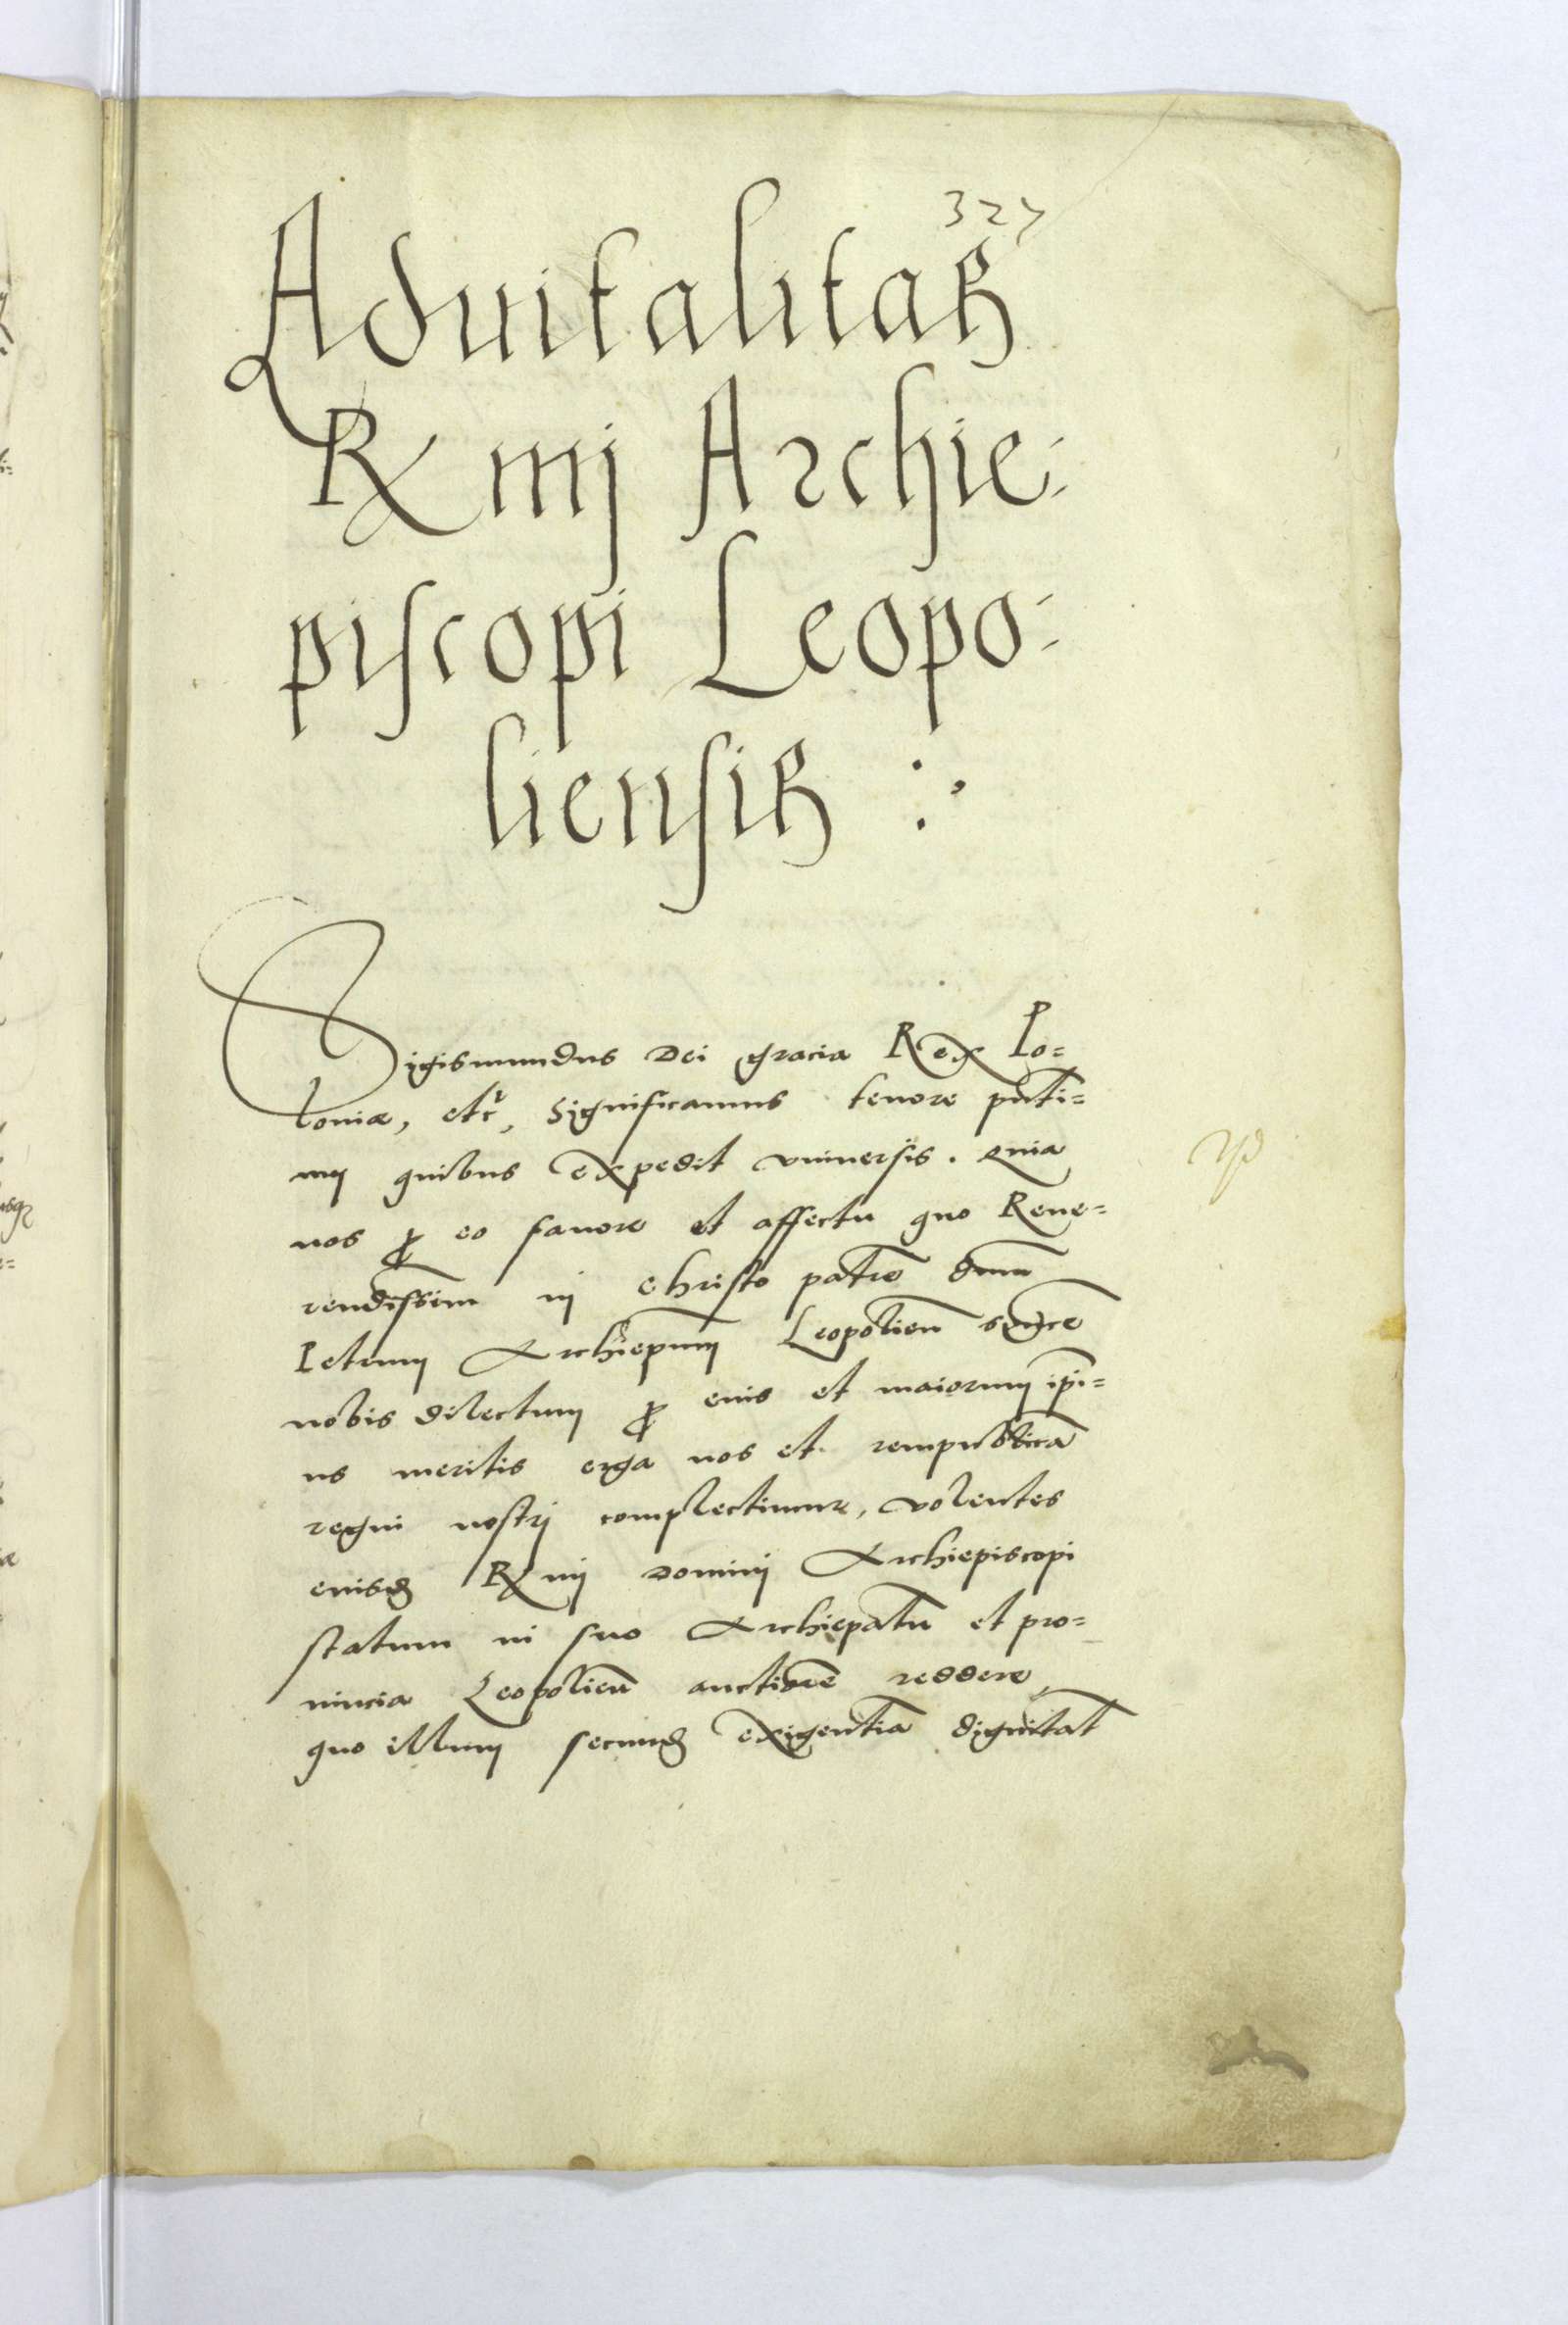 327
Aduitalitas
Rx mj Archie=
piscopi Leopo=
liensis :
Sigismundus Dei gracia Rex Po=
loniæ, etc, Significamus tenore pnti=
um quibus expedit vniuersis. Quia
nos pro eo fauore et affectu quo Reue=
rendissim in Christo patre dnm
Petrum Archiepum Leopolien syncere
nobis dilectum pro euis et maiorum ipi=
us meritis erga nos et rempublica
regni nostrj complectimur, volentes
euisdem Rx mj Dominj Archiepiscopi
statum in suo Archiepatu et pro=
uincia Leopolien auctiore reddere
quo illum secund exigentia dignitat